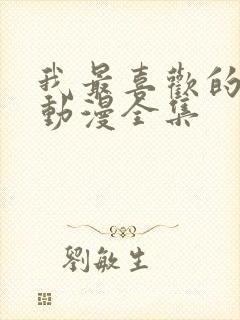 我最喜歡的
動漫全集
劉敏生